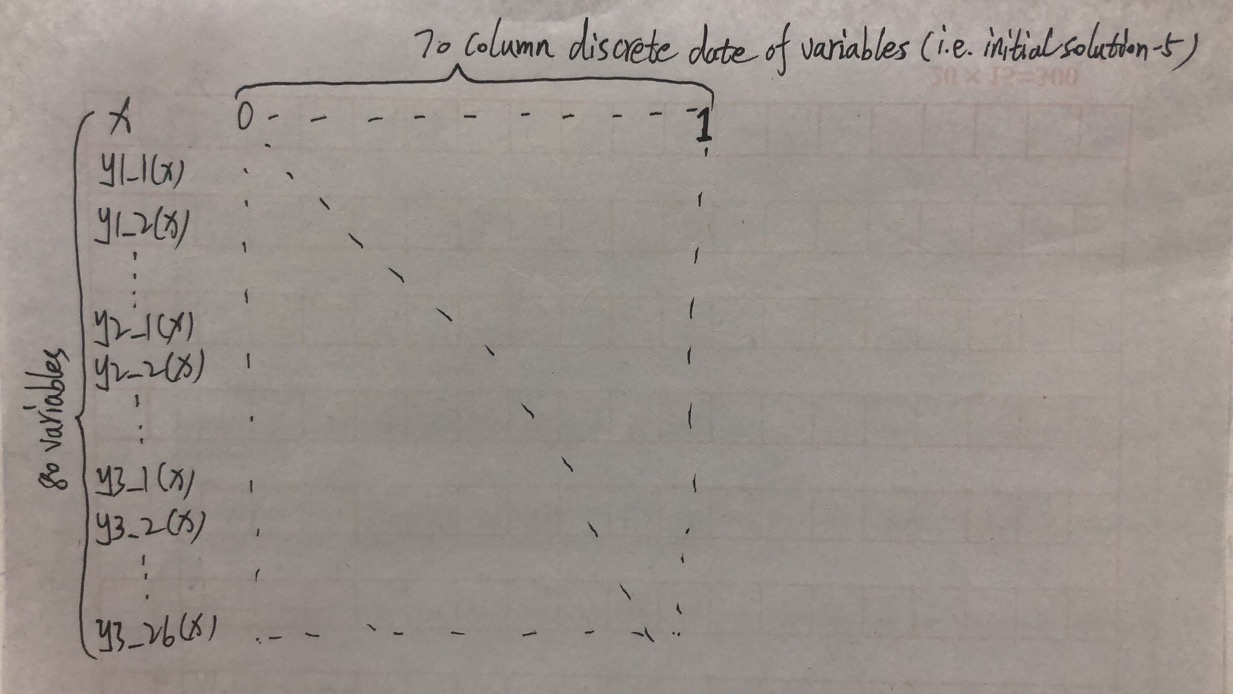 70 column discrete date of variables (i.e. initial solution-5)
20 × 15=300
x 0 1
y1_1(x)
y1_2(x)
y2_1(x)
y2_2(x)
80 variables
y3_1(x)
y3_2(x)
y3_26(x)